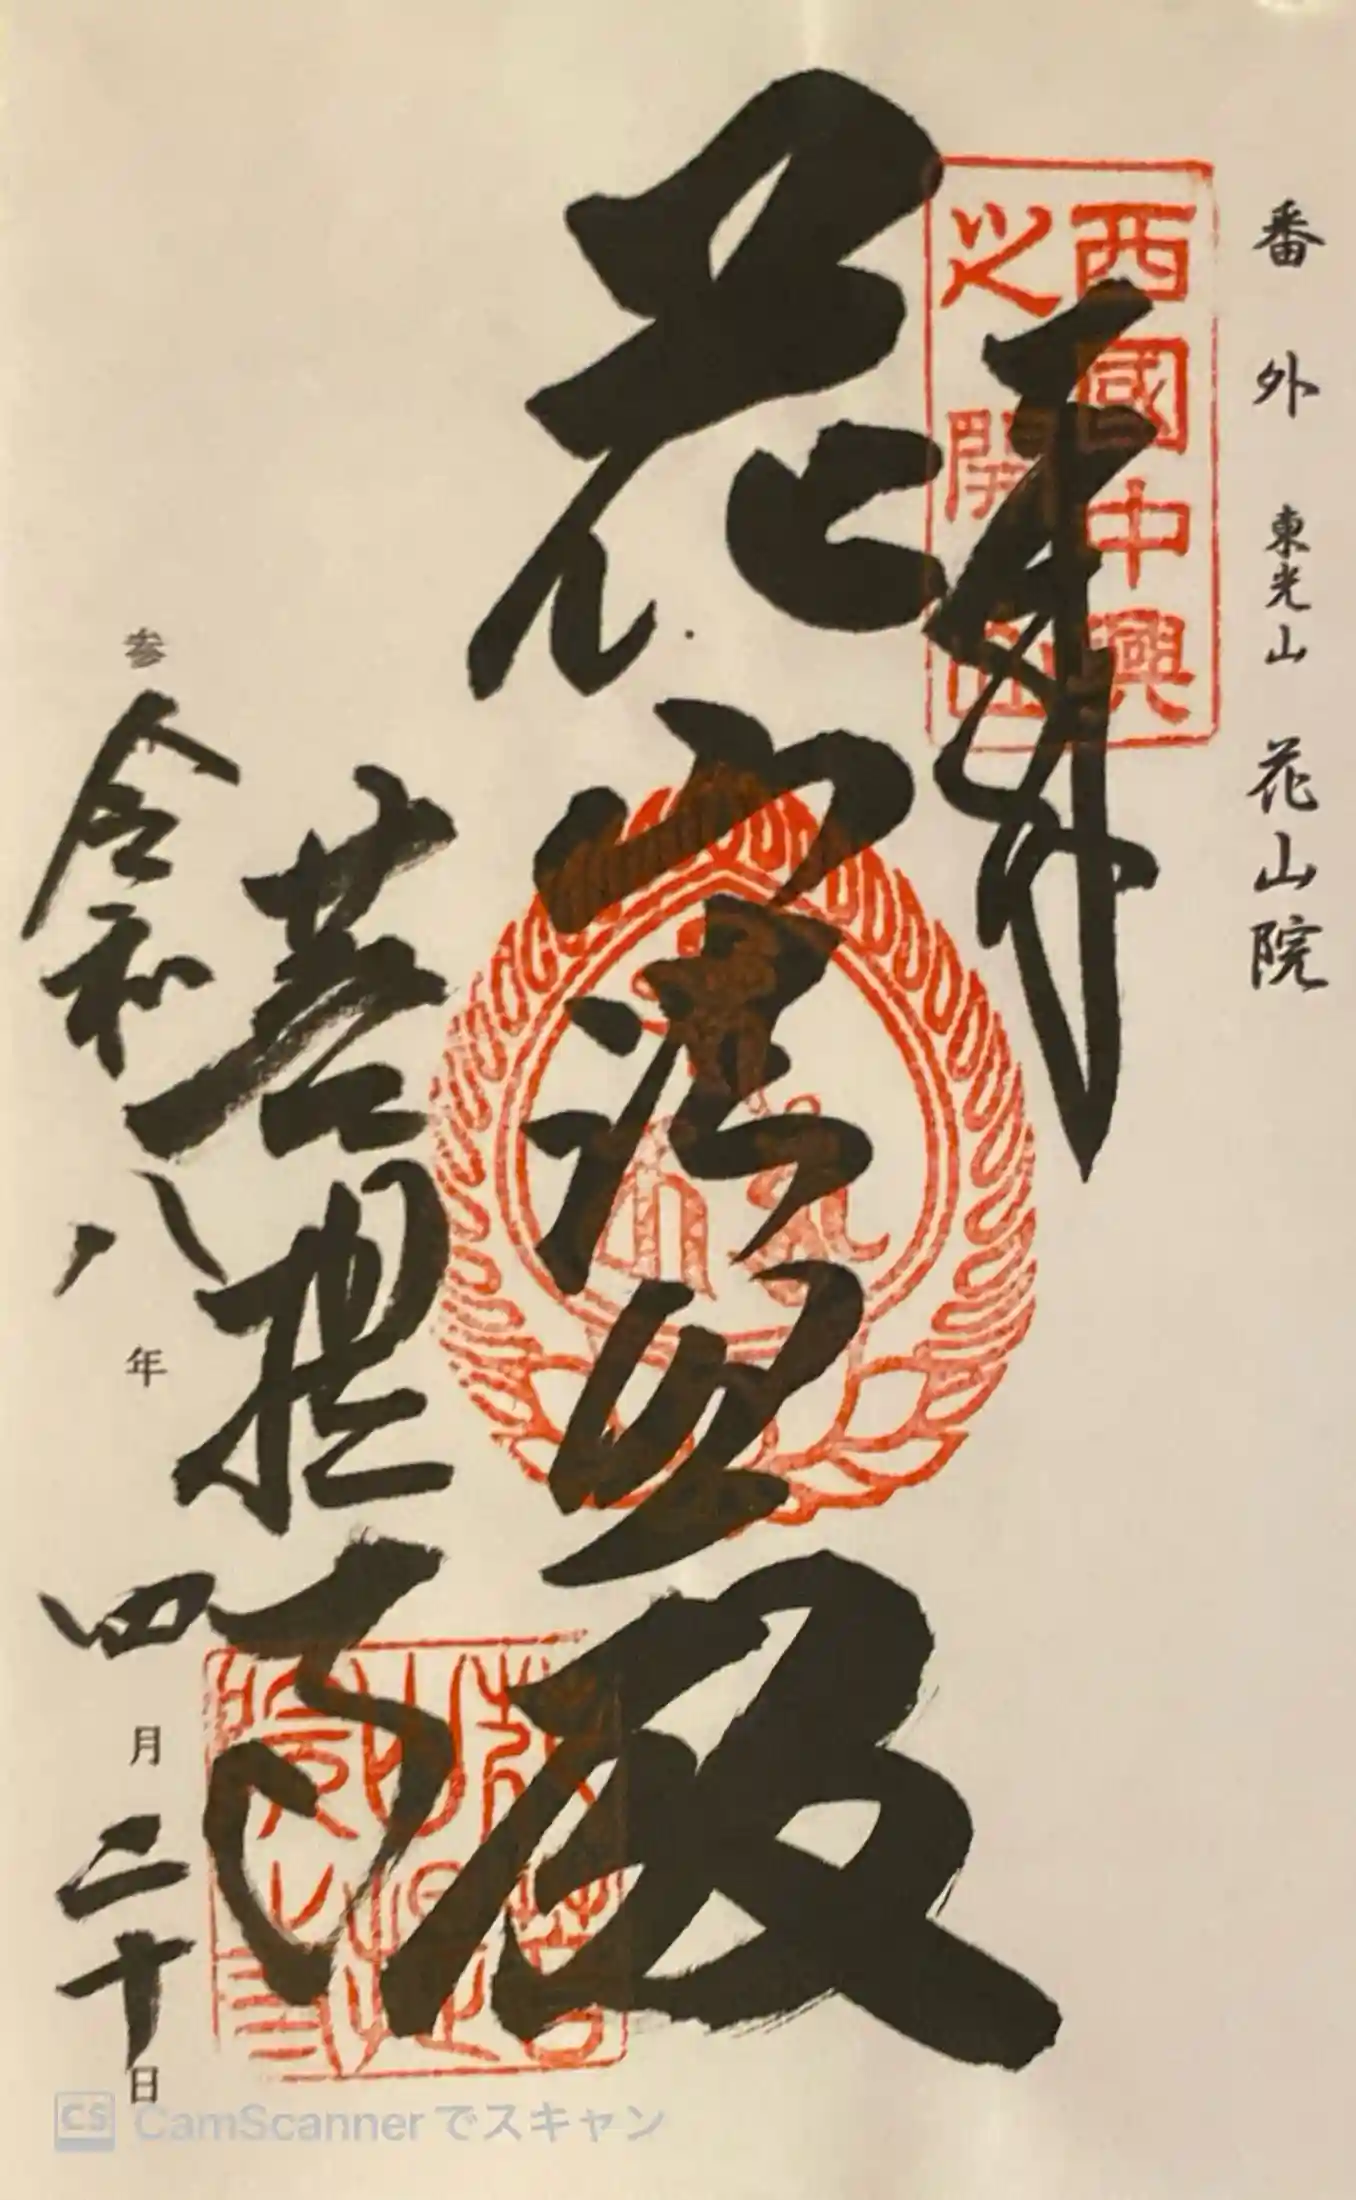 番外 東光山 花山院
奉拝
西國中興
之開山
花山法皇殿
菩提寺
参
令和八年四月二十日
CS CamScannerでスキャン